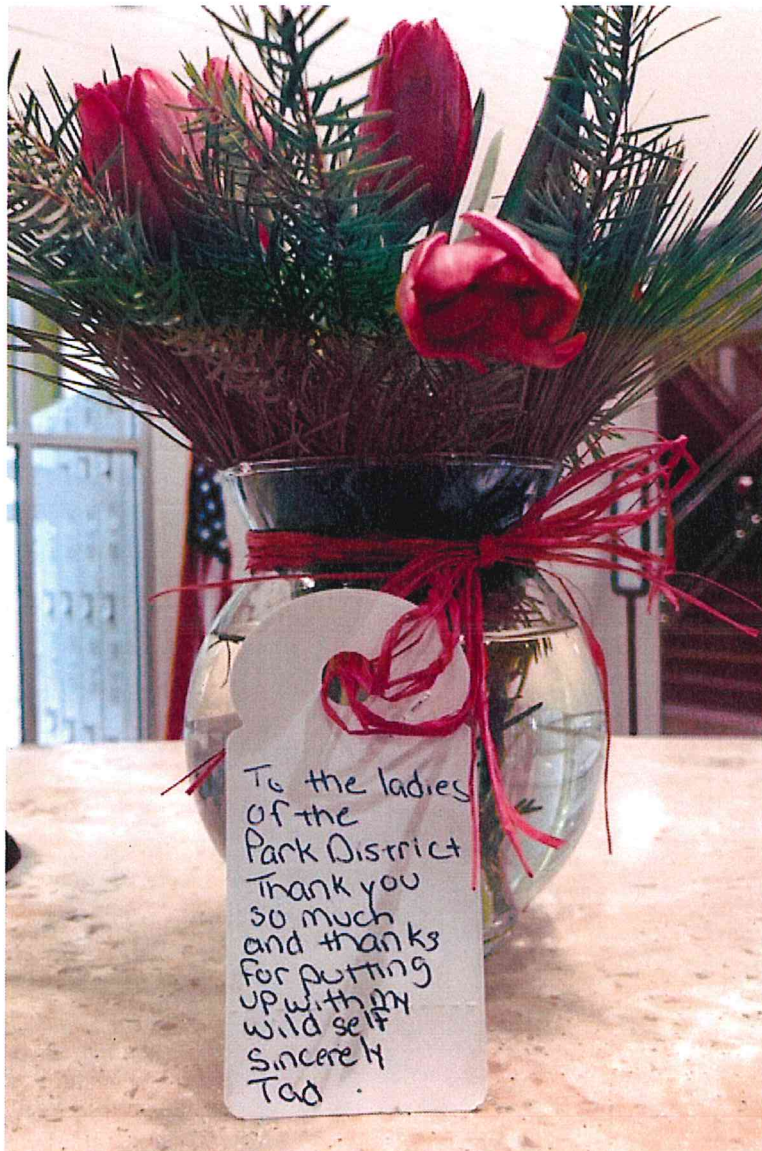 To the ladies
of the
Park District
Thank you
so much
and thanks
for putting
up with my
wild self
sincerely
Tad